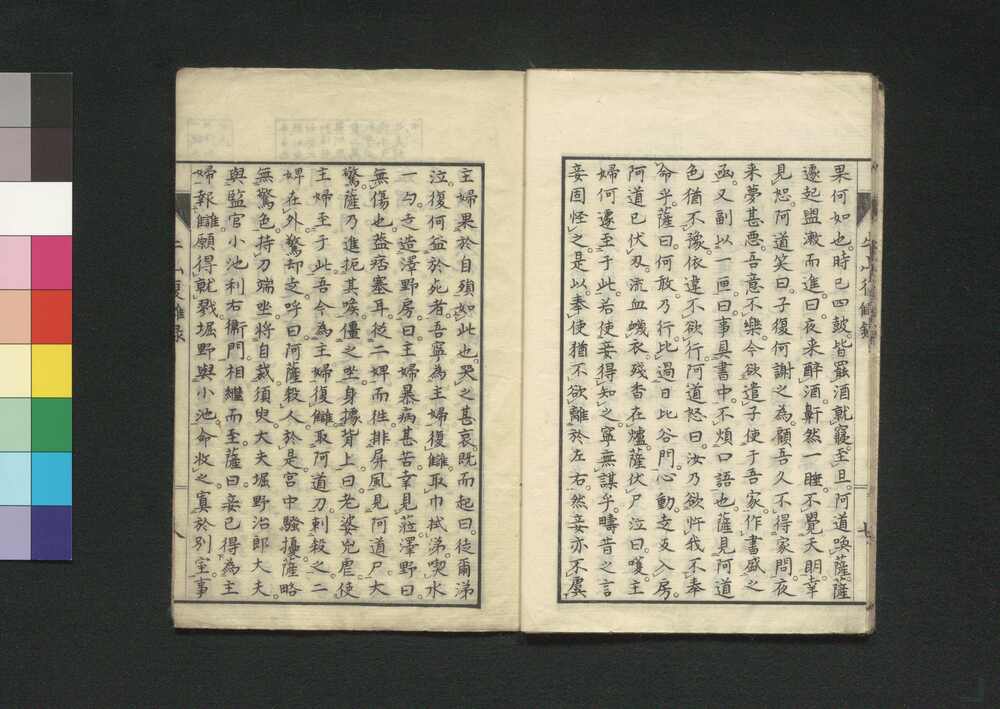 果何如也。時已四鼓皆罷酒就寢。至旦。阿道喚薩。薩
遽起盥漱而進。曰夜来酔酒。鼾然一睡。不覺天明。幸
見恕。阿道笑曰。子復何謝之為。顧吾久不得家問。夜
来夢甚悪。吾意不樂。今欲遣子使于吾家。作書盛之
函。又副以一匣曰。事具書中。不煩口語也。薩見阿道
色猶不豫。依違不欲行。阿道怒曰。汝乃欲忤我不奉
命乎。薩曰。何敢。乃行。比過日比谷門。心動。支叉入房。
阿道已伏刃。流血衊衣。殘香在爐。薩伏尸泣曰。嘆主
婦何遽至于此。若使妾得知之。寧無謀乎。疇昔之言
妾固怪之。是以奉使猶不欲離於左右。然妾亦不虞
七
主婦果於自殞如此也。哭之甚哀。既而起曰。徒爾涕
泣。復何益於死者。吾寧為主婦復讎。取巾拭涕。喫水
一勺。之造澤野房曰。主婦暴病甚苦。幸見莅。澤野曰
無傷也。蓋痞塞耳。從二婢而徃。排屏風見阿道尸大
驚。薩乃進扼其喉僵之。坐身據背上曰。老婆兇虐。使
主婦至于此。吾今為主婦復讎。取阿道刀刺殺之。二
婢在外。驚却走呼曰。阿薩殺人。於是宮中騷擾。薩略
無驚色。持刀端坐。将自裁。須臾大夫堀野治郎大夫
與監官小池利右衛門。相繼而至。薩曰。妾已得為主
婦報讎。願得就戮。堀野與小池命收之。寘於別室。事
復讎録
八